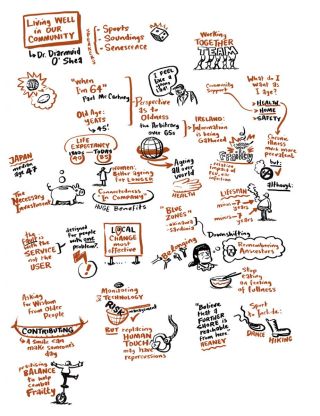 Living WELL
in OUR
COMMUNITY
↳ Dr. Diarmuid
O'Shea
SPEAKERS
- Sports
- Soundings
- Senescence
Working
TOGETHER
TEAM
"When
I'm 64"
Paul McCartney
Old Age:
YEATS
↳ 45!
Perspective
as to
Oldness
the Arbitrary
over 65s
I FEEL
like a
Community
Support
What do I
want as
I age?
→ HEALTH
→ HOME
→ SAFETY
IRELAND:
↳ Information
is being
Gathered
JAPAN
median
age 47
LIFE
EXPECTANCY
1800s
40
TODAY
85
WOMEN:
Better ageing
for LONGER
Ageing
all over
world
Frailty
Chronic
illness
most more
prevalent
but:
although:
The
Necessary
Investment
Connectedness
in Company
HUGE Benefits
HEALTH
LIFESPAN
men - 7
years
women - 7
years
"BLUE
ZONES"
- okinawa
- Sardinia
the FAULT
is with the
SERVICE
not the
USER
designed
for people
with one
problem!
LOCAL
CHANGE
most
effective
Belonging
Downshifting
Remembering
Ancestors
Stop
eating
on feeling
of fullness
Asking
for Wisdom
from Older
People
CONTRIBUTING
↳ A smile can
make someone's
day
Monitoring
& TECHNOLOGY
RISK
management
BUT replacing
HUMAN
TOUCH
may have
repercussions
"Believe
that a
FURTHER
SHORE is
reachable
from here."
HEANEY
Sport to
Include:
DANCE
HIKING
practising
BALANCE
to help
combat
Frailty